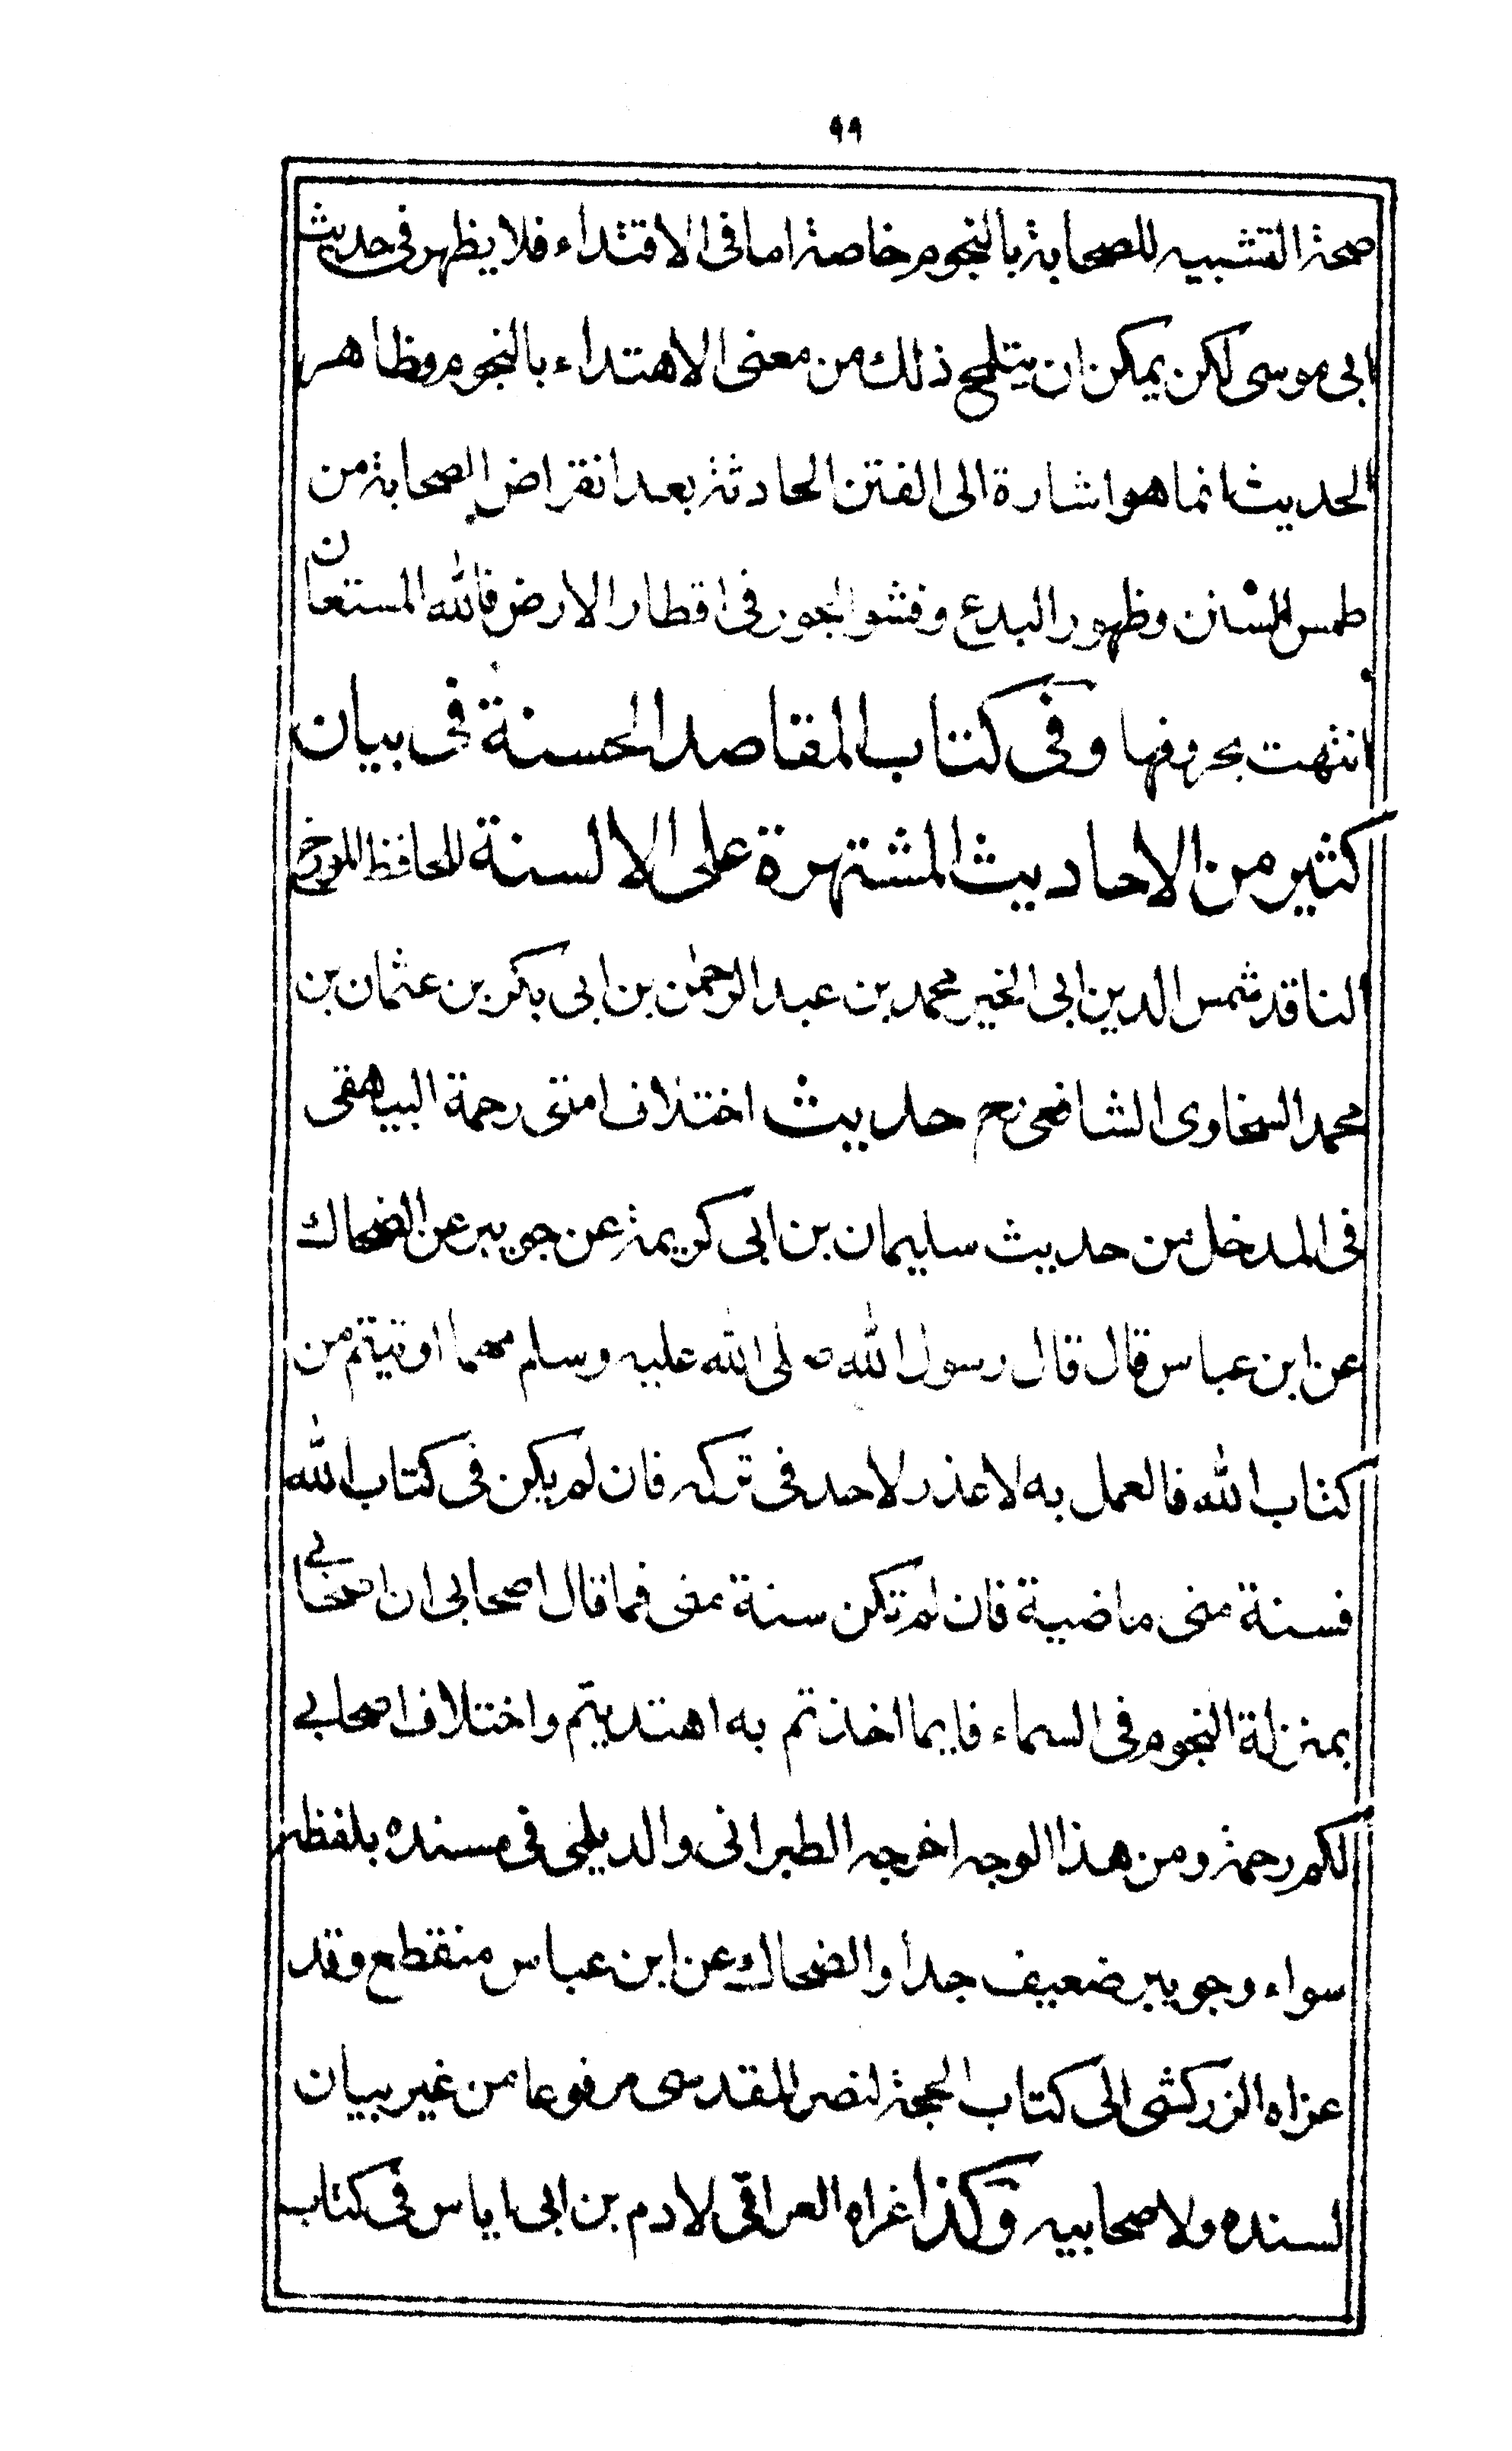 ٩٩
صحة التشبيه للصحابة بالنجوم خاصة اما فى الاقتداء فلا يظهر فى حديث
ابى موسى لكن يمكن ان يتلمح ذلك من معنى الاهتداء بالنجوم وظاهر
الحديث انما هو اشارة الى الفتن الحادثة بعد انقراض الصحابة من
طمس السنن وظهور البدع وفشو الجور فى اقطار الارض فالله المستعان
انتهت بحروفها وفى كتاب المقاصد الحسنة فى بيان
كثير من الاحاديث المشتهرة على الالسنة للحافظ المورخ
الناقد شمس الدين ابى الخير محمد بن عبد الرحمٰن بن ابى بكر بن عثمان بن
محمد السخاوى الشافعى رح حديث اختلاف امتى رحمة البيهقى
فى المدخل من حديث سليمان بن ابى كريمة عن جويبر عن الضحاك
عن ابن عباس قال قال رسول الله صلى الله عليه وسلم مهما اوتيتم من
كتاب الله فالعمل به لا عذر لاحد فى تركه فان لم يكن فى كتاب الله
فسنة منى ماضية فان لم تكن سنة منى فما قال اصحابى ان اصحابى
بمنزلة النجوم فى السماء فايما اخذتم به اهتديتم واختلاف اصحابى
لكم رحمة ومن هذا الوجه اخرجه الطبرانى والديلمى فى مسنده بلفظه
سواء وجويبر ضعيف جدا والضحاك عن ابن عباس منقطع وقد
عزاه الزركشى الى كتاب الحجة لنصر المقدسى مرفوعا من غير بيان
لسنده ولا صحابيه وكذا غراه العراقى لادم بن ابى اياس فى كتاب